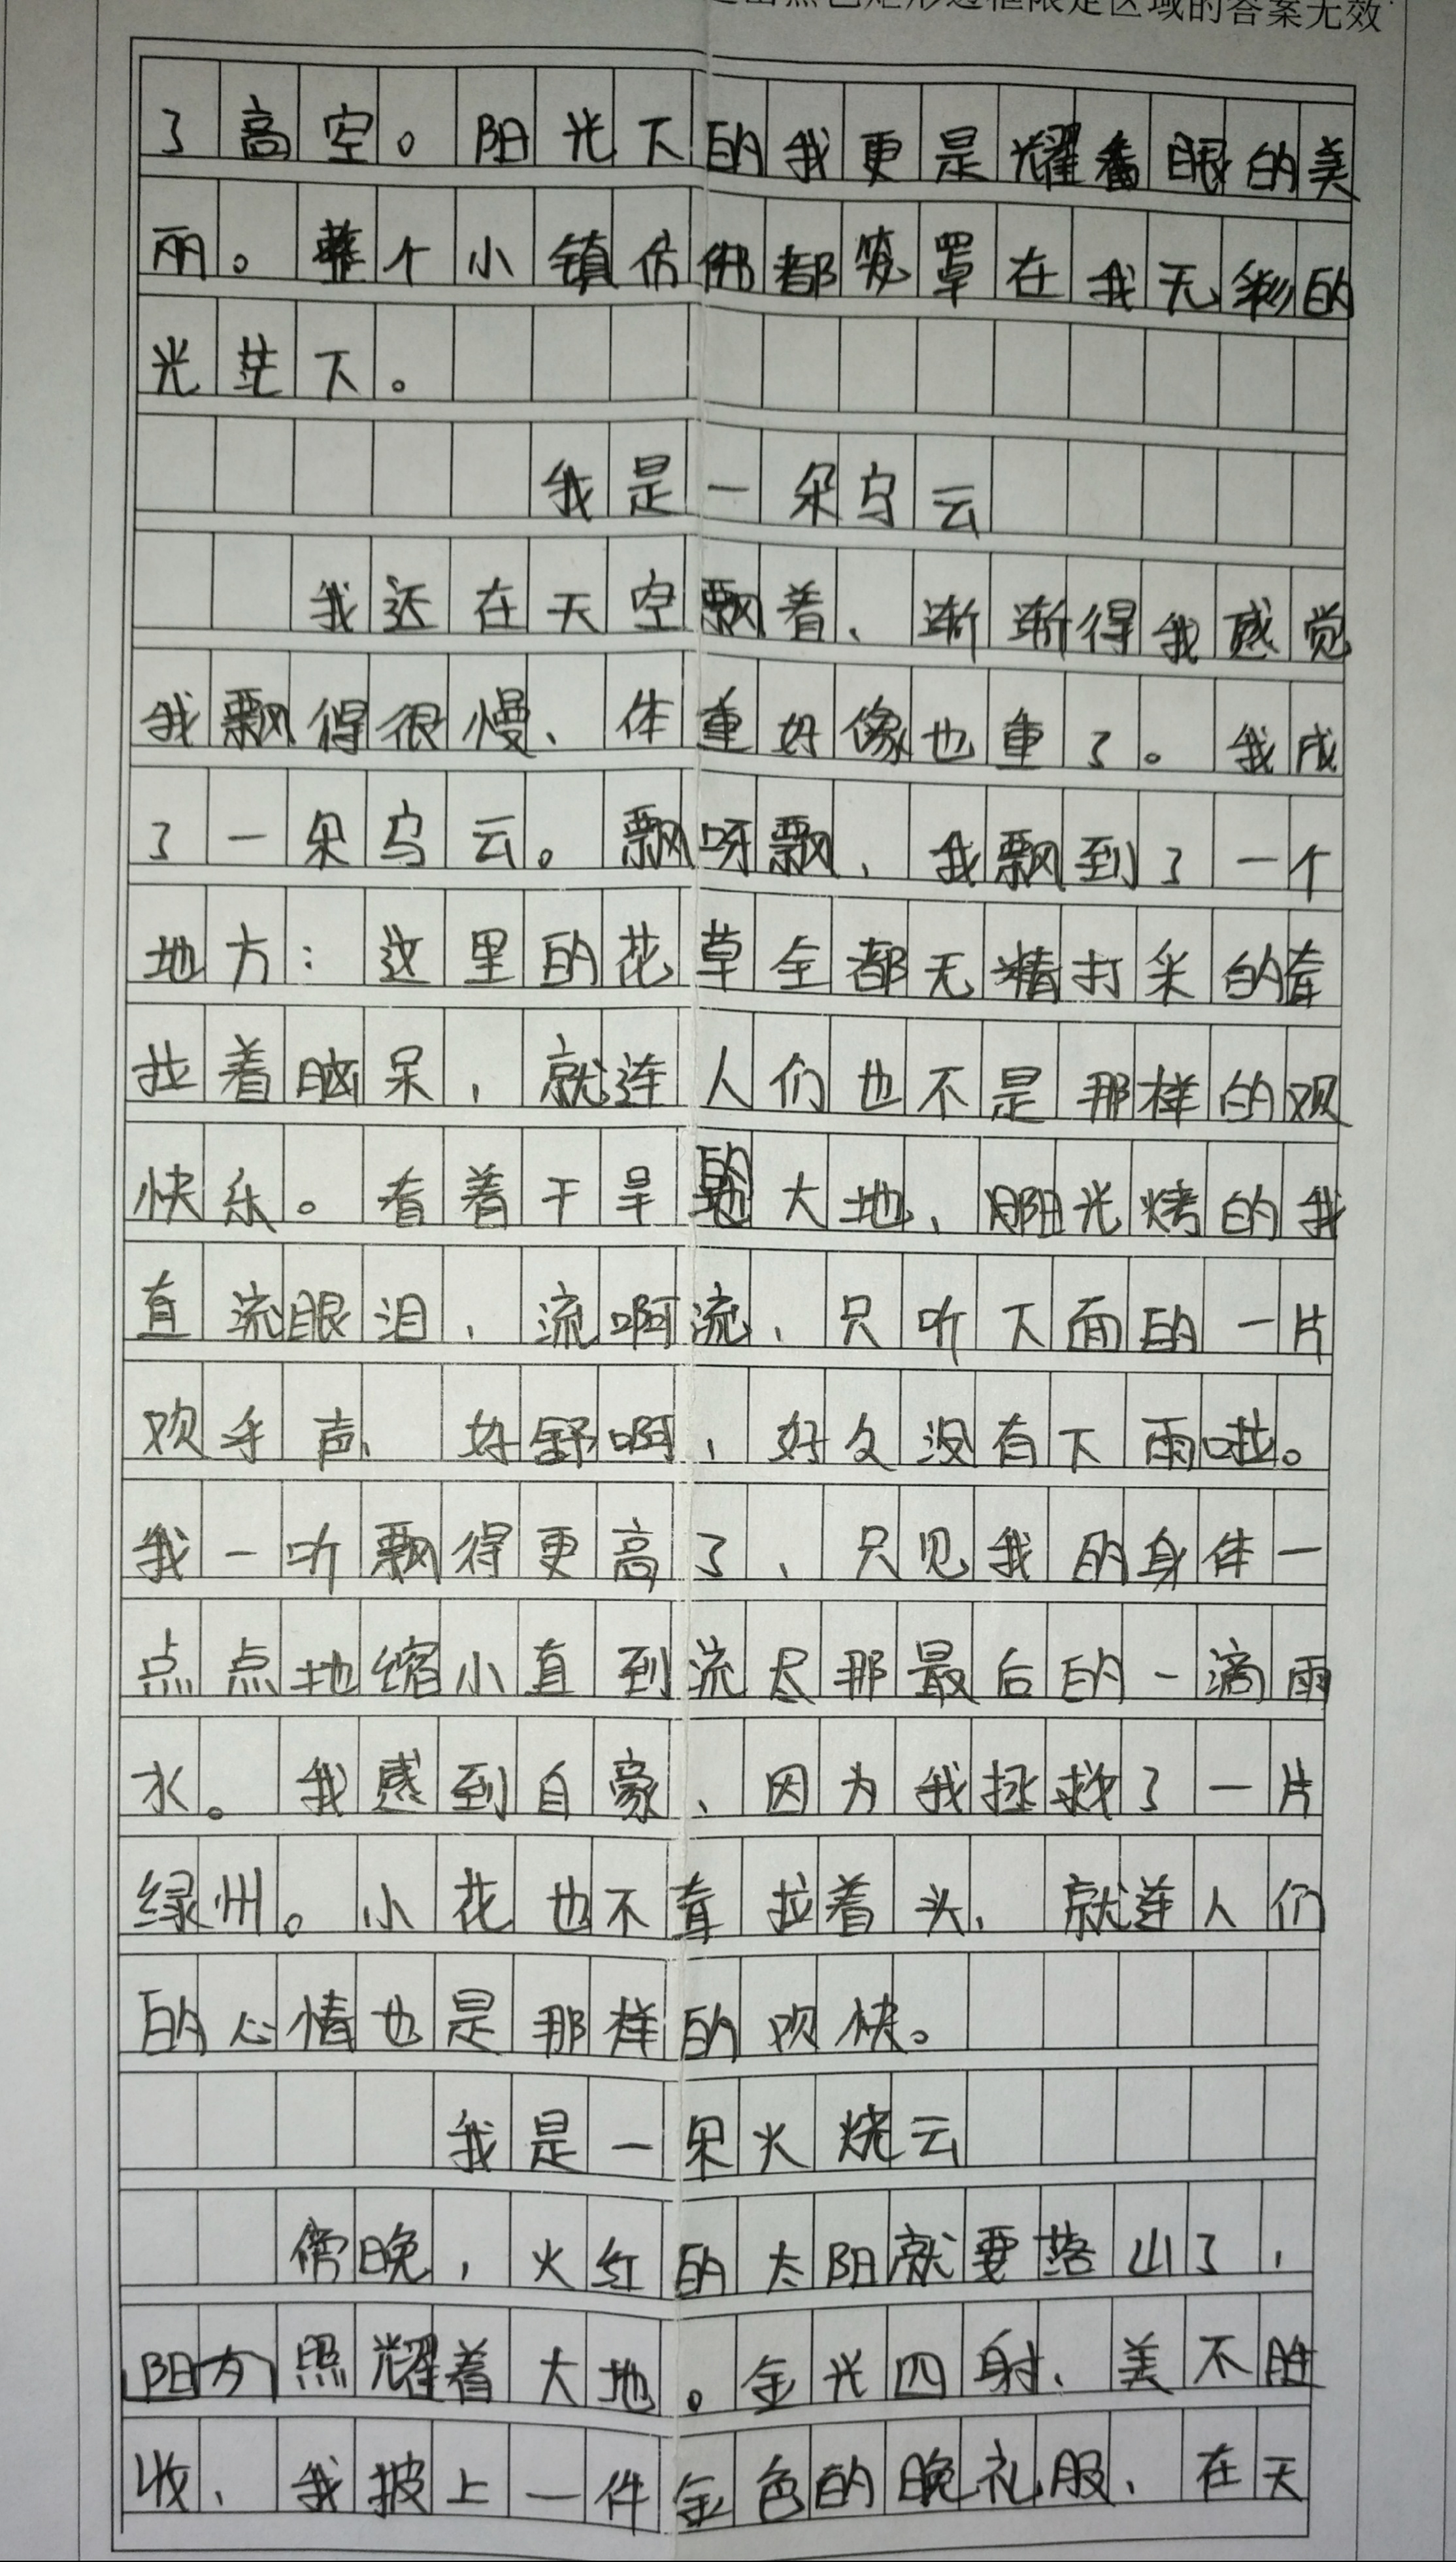 超出黑色矩形边框限定区域的答案无效
了高空。阳光下的我更是耀番眼的美
丽。整个小镇仿佛都笼罩在我无彩的
光芒下。
我是一朵乌云
我还在天空飘着、渐渐得我感觉
我飘得很慢、体重好像也重了。我成
了一朵乌云。飘呀飘，我飘到了一个
地方：这里的花草全都无精打采的耷
拉着脑呆，就连人们也不是那样的欢
快乐。看着干旱的大地、阳光烤的我
直流眼泪，流啊流、只听下面的一片
欢乎声、好舒啊，好久没有下雨啦。
我一听飘得更高了、只见我的身体一
点点地缩小直到流尽那最后的一滴雨
水。我感到自豪、因为我拯救了一片
绿州。小花也不耷拉着头、就连人们
的心情也是那样的欢快。
我是一朵火烧云
傍晚，火红的太阳就要落山了，
阳方照耀着大地。金光四射、美不胜
收、我披上一件金色的晚礼服、在天